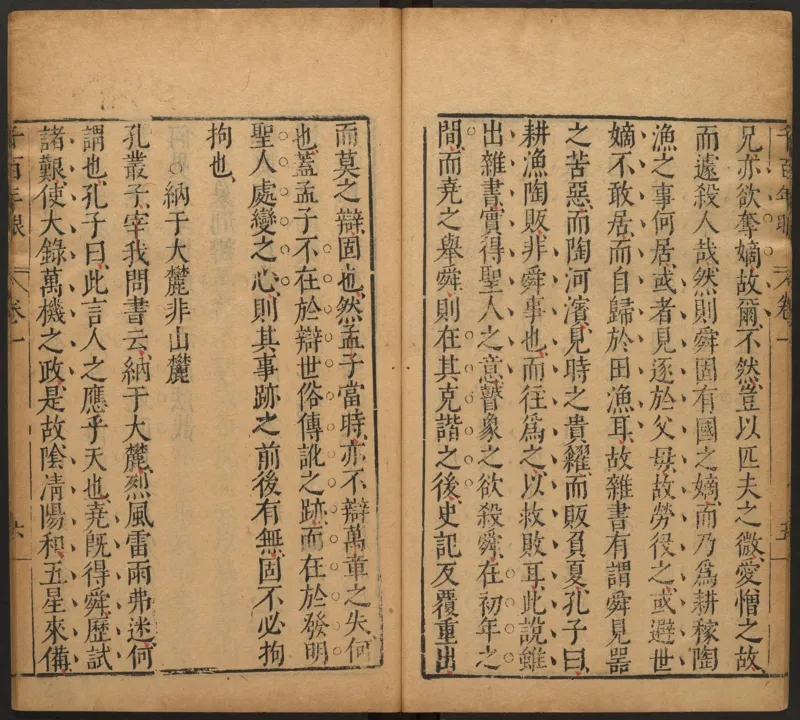 兄亦欲奪嫡故爾不然豈以匹夫之微愛憎之故
而遽殺人哉然則舜固有國之嫡而乃爲耕稼陶
漁之事何居或者見逐於父母故勞役之或避世
嫡不敢居而自歸於田漁耳故雜書有謂舜見器
之苦惡而陶河濱見時之貴糴而販負夏孔子曰
耕漁陶販非舜事也而往爲之以救敗耳此說雖
出雜書實得聖人之意瞽象之欲殺舜在初年之
間而堯之舉舜則在其克諧之後史記反覆重出
而莫之辯固也然孟子當時亦不辯萬章之失何
也蓋孟子不在於辯世俗傳訛之跡而在於發明
聖人處變之心則其事跡之前後有無固不必拘
拘也
○納于大麓非山麓
孔叢子宰我問書云納于大麓烈風雷雨弗迷何
謂也孔子曰此言人之應乎天也堯既得舜歷試
諸艱使大錄萬機之政是故陰清陽和五星來備
千百年眼 卷一 六